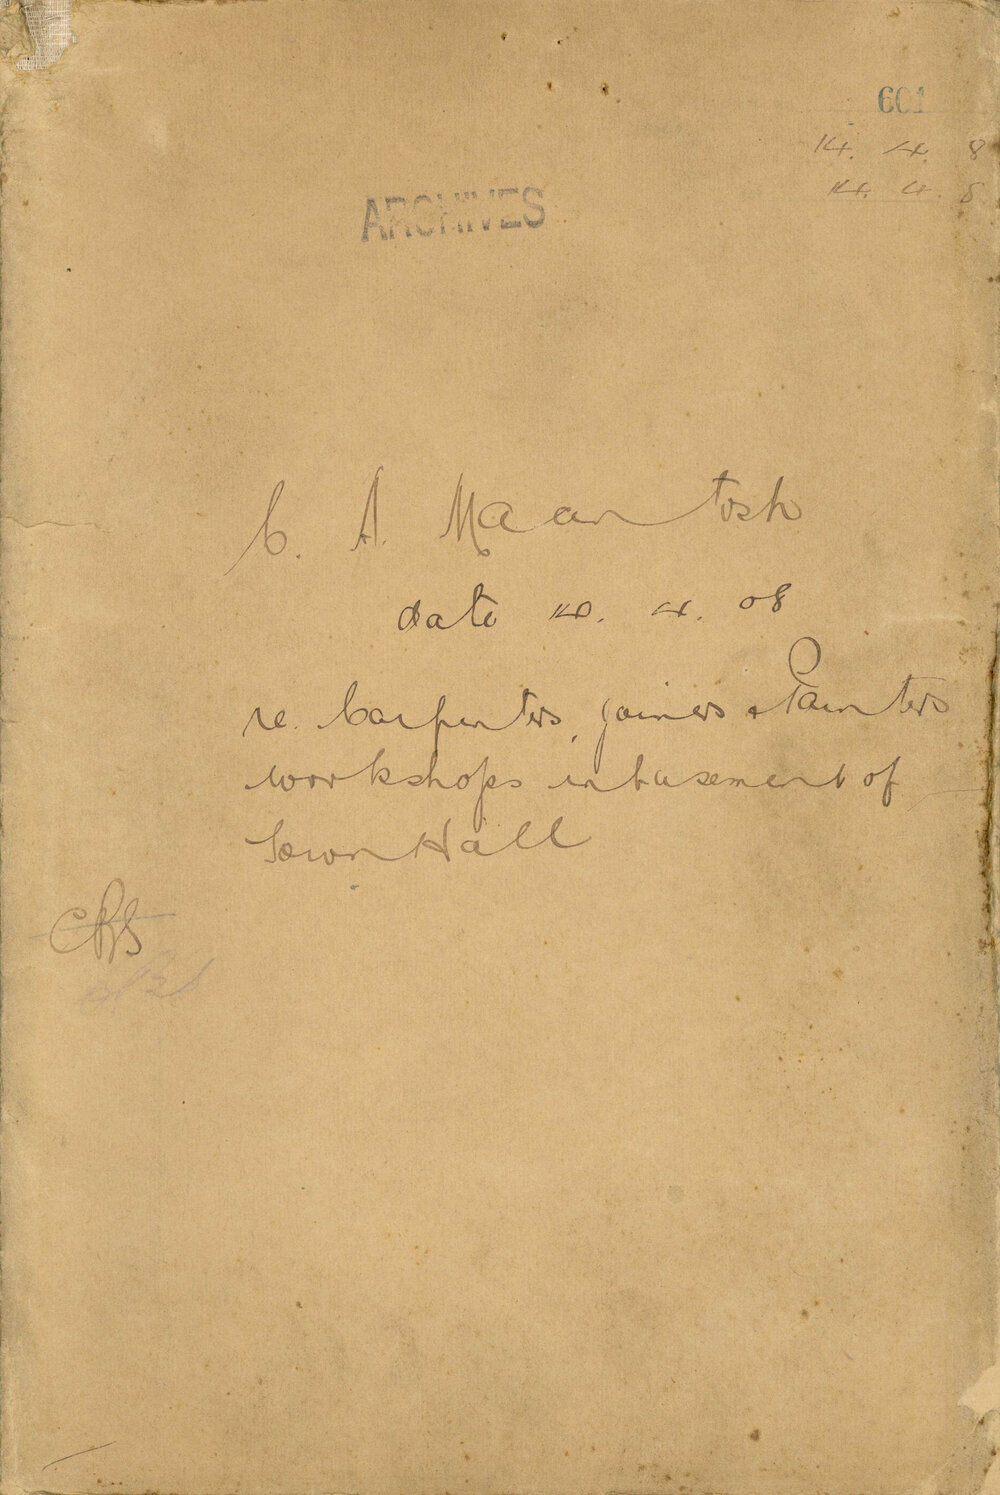 601
14. 4. 8
14. 4. 8
ARCHIVES
C. A. Macintosh
date 14. 4. 08
re. Carpenters, joiners & Painters
workshops in basement of
Town Hall
CRS